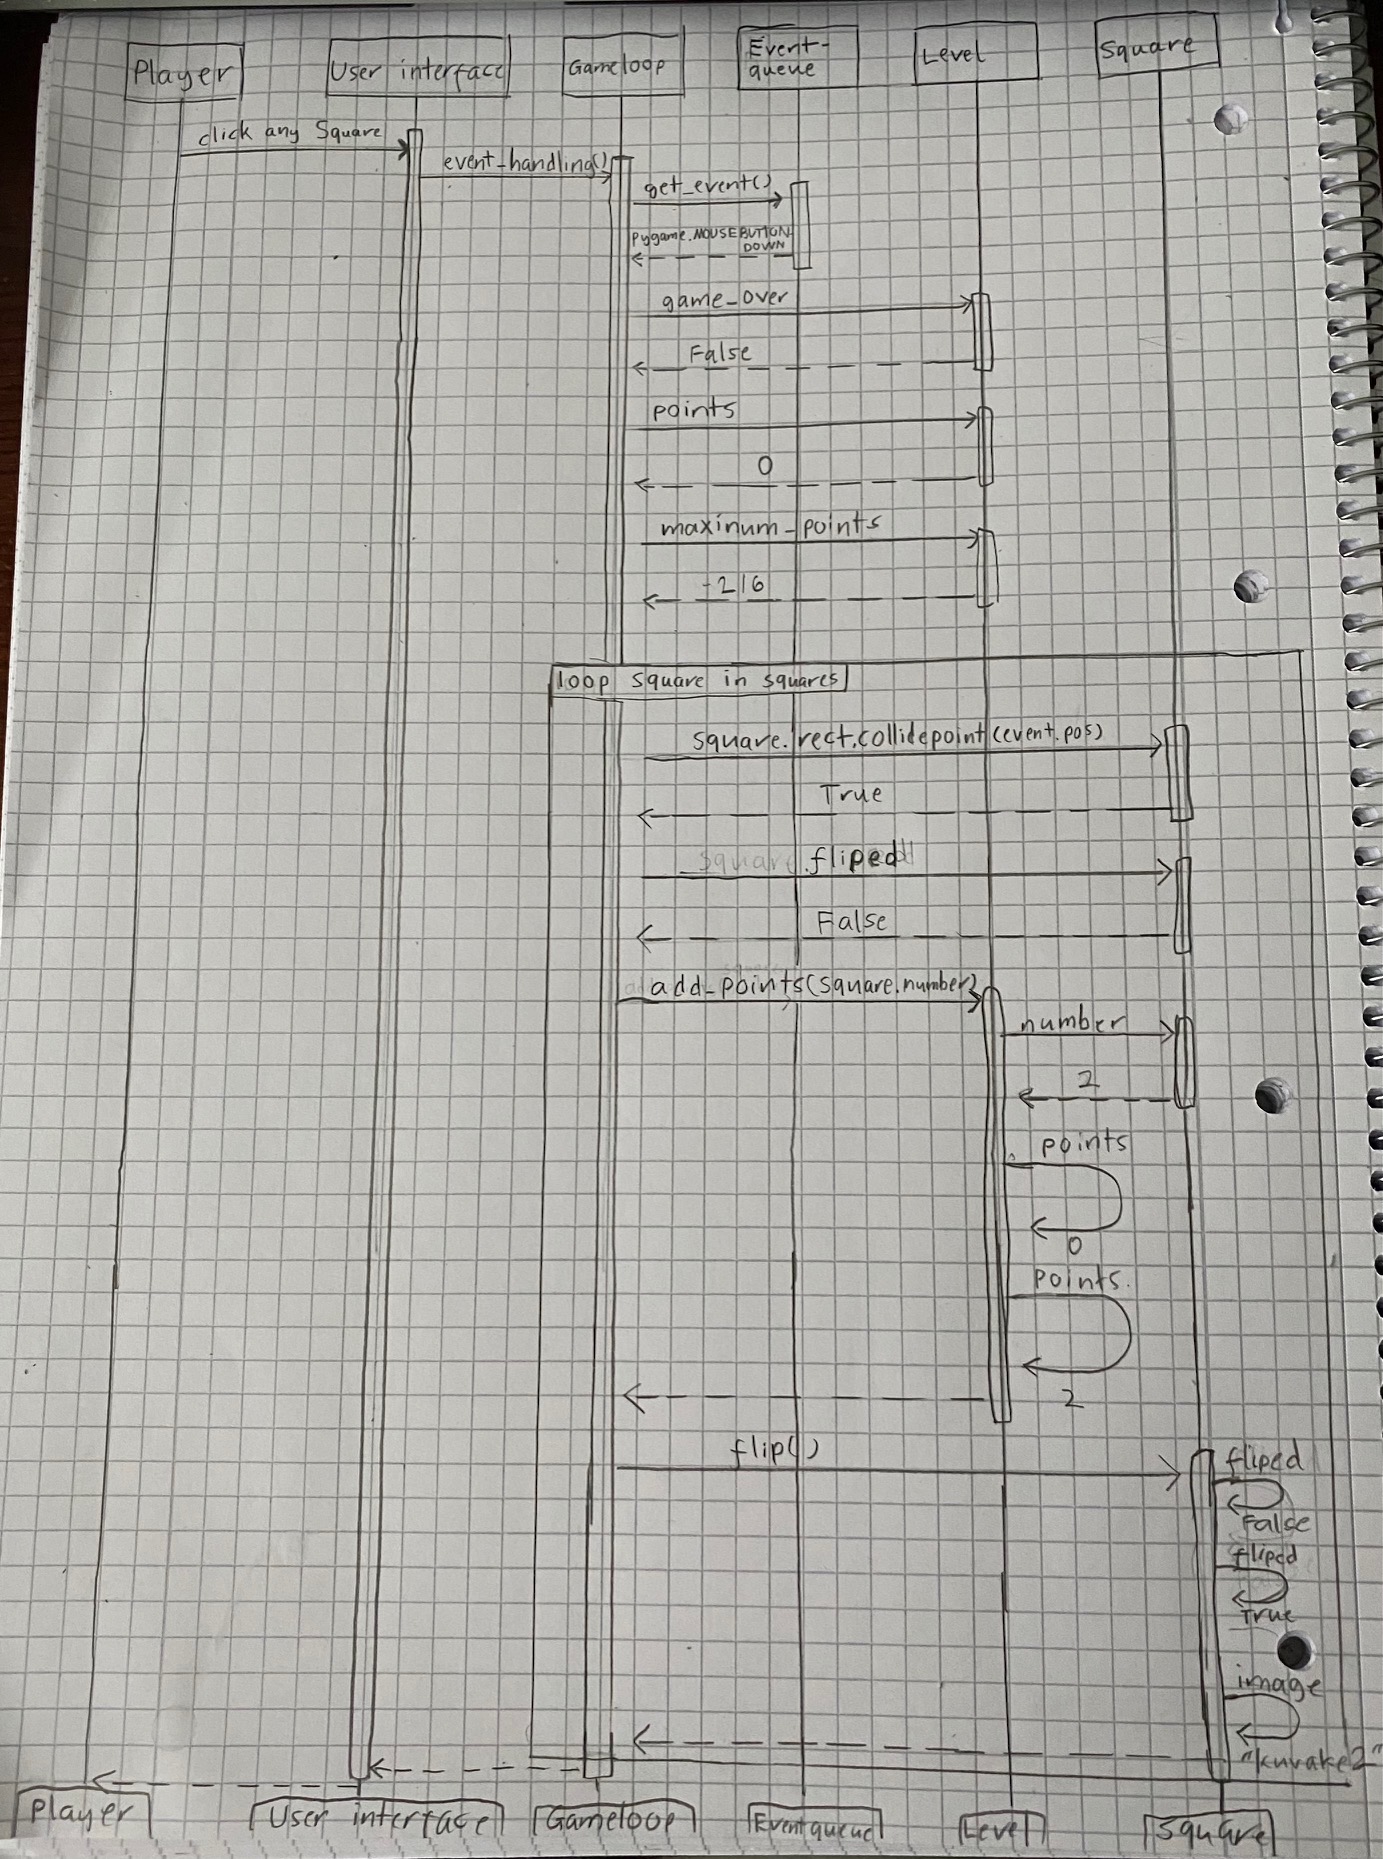 Player
User interface
Gameloop
Event-
queue
Level
Square
click any Square
event-handling()
get_event()
Pygame.MOUSEBUTTON
DOWN
game-over
False
points
0
maxinum-points
-216
loop square in squares
square.rect.collidepoint(event.pos)
True
.fliped
False
add-points(square.number)
number
2
points
0
points.
2
flip()
fliped
False
fliped
True
image
"kuvake2"
Player
User interface
Gameloop
Eventqueue
Level
Square